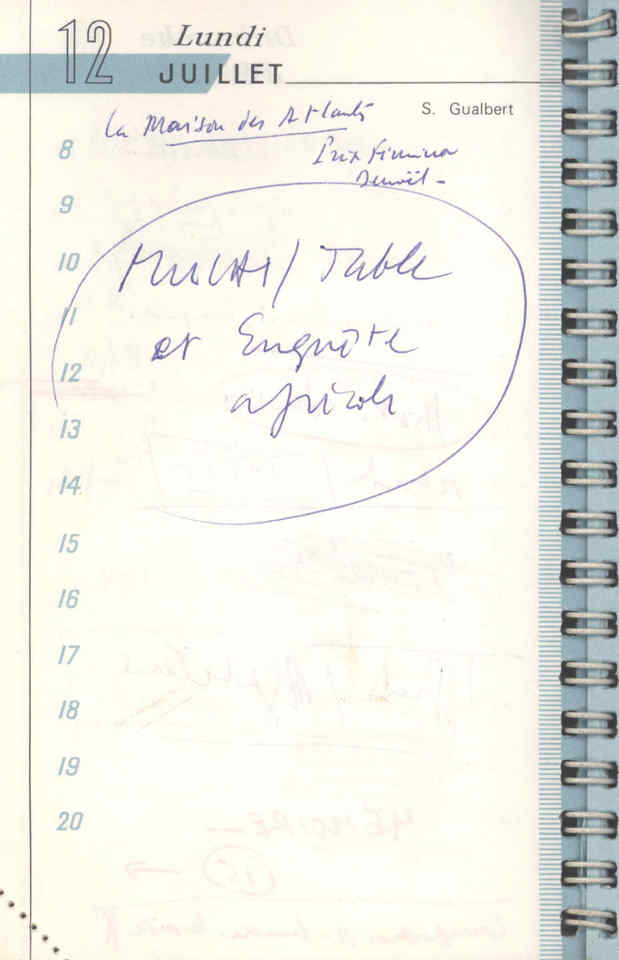 12 Lundi
JUILLET
S. Gualbert
La Maison des Atlantes
Prix Fémina
Denoël -
8
9
10
Table
11
et Enquête
12
agricole
13
14
15
16
17
18
19
20